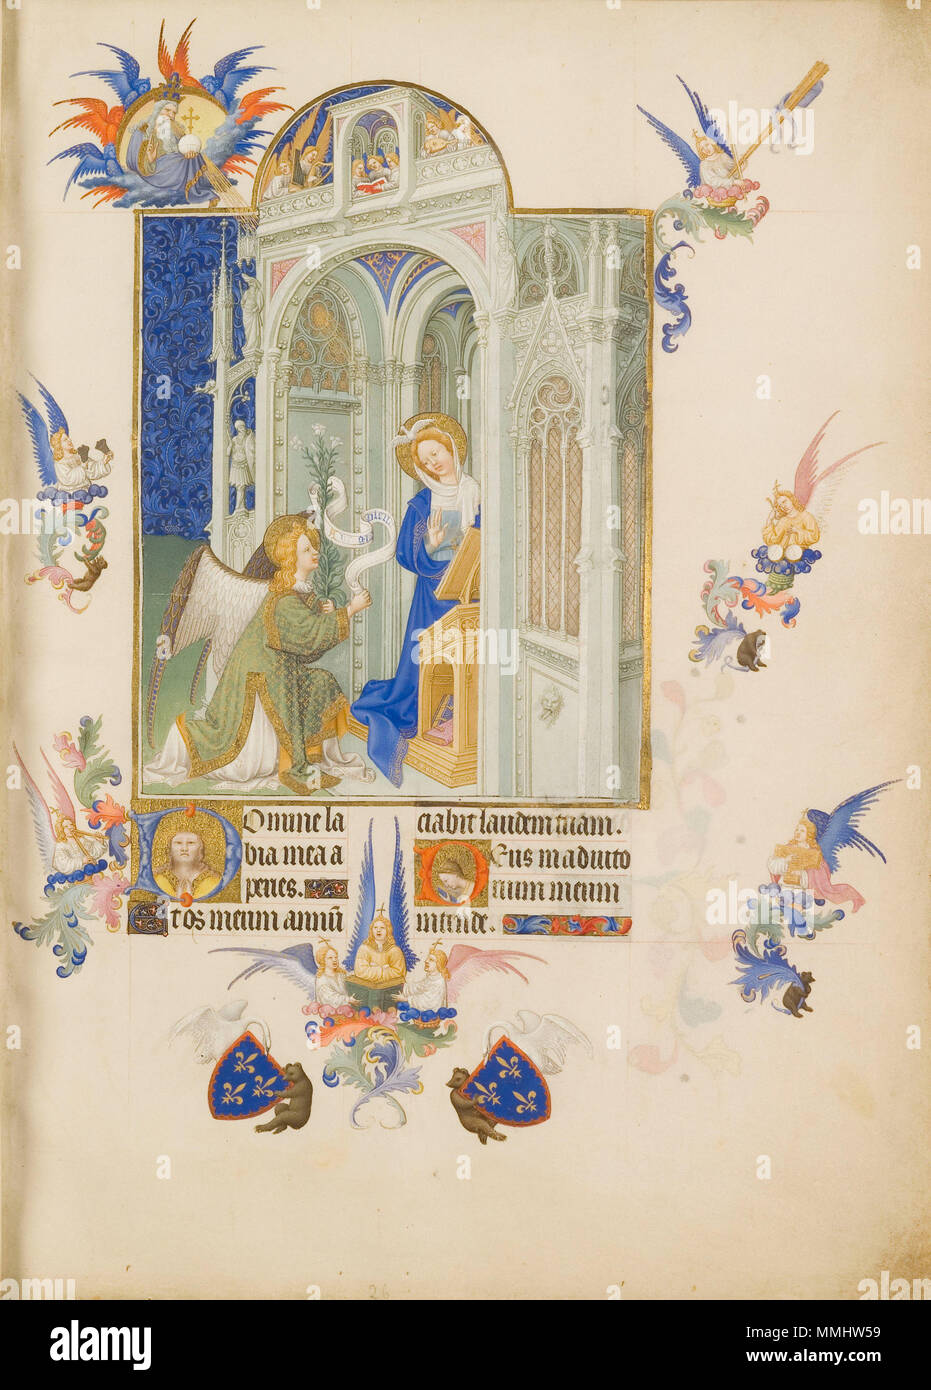 Domine la
bia mea a
peries.
Et os meum annū
ciabit laudem tuam.
Deus in adiuto
rium meum
intende.
26
alamy
Image ID: MMHW59
www.alamy.com